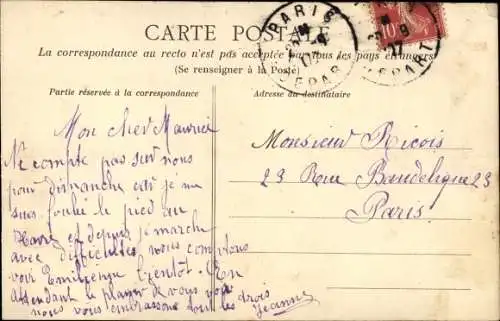 CARTE POSTALE
La correspondance au recto n'est pas acceptée par tous les pays étrangers
(Se renseigner à la Poste)
PARIS
DEPART
10
Partie réservée à la correspondance
Adresse du destinataire
Mon cher Maurice
Ne compte pas sur nous
pour dimanche car je me
suis foulé le pied au
Havre et depuis je marche
avec difficultés nous comptons
voir Emilienne bientôt. En
attendant le plaisir de vous voir
nous vous embrassons tous les trois
Jeanne
Monsieur Ricois
23 Rue Baudelique 23
Paris